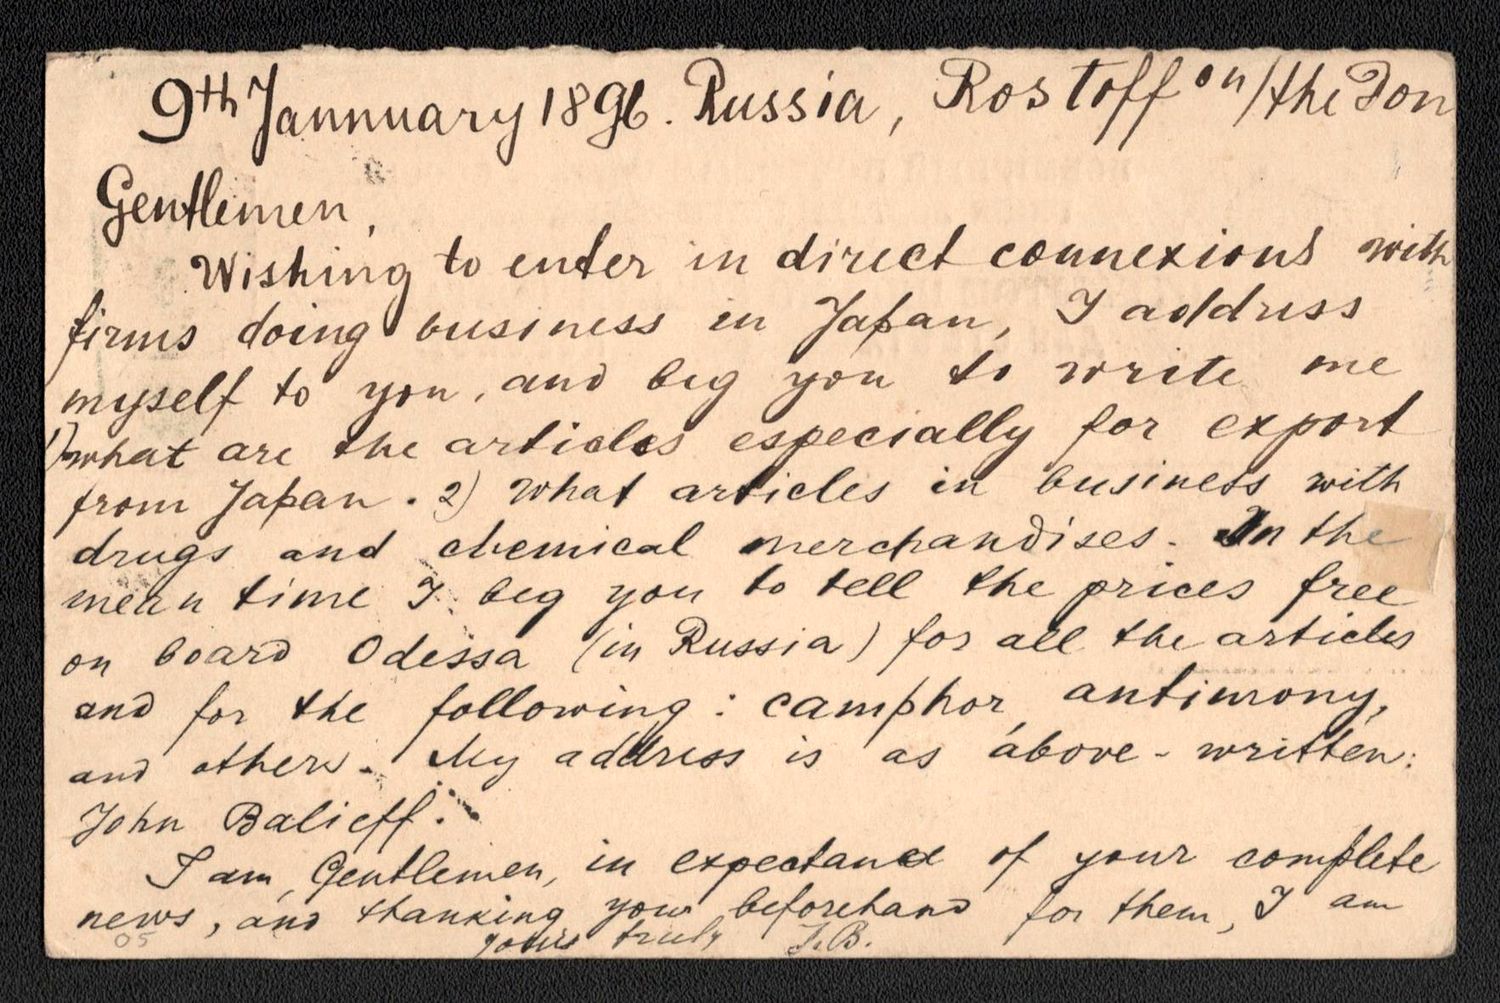 9th Jannnuary 1896. Russia, Rostoff on/the Don
Gentlemen,
Wishing to enter in direct connexions with
firms doing business in Japan, I address
myself to you, and beg you to write me
1) what are the articles especially for export
from Japan. 2) What articles in business with
drugs and chemical merchandises. In the
mean time I beg you to tell the prices free
on board Odessa (in Russia) for all the articles
and for the following: camphor, antimony,
and others. My address is as above-written:
John Balieff.
I am, Gentlemen, in expectance of your complete
news, and thanking you beforehand for them, I am
yours truly J.B.
05